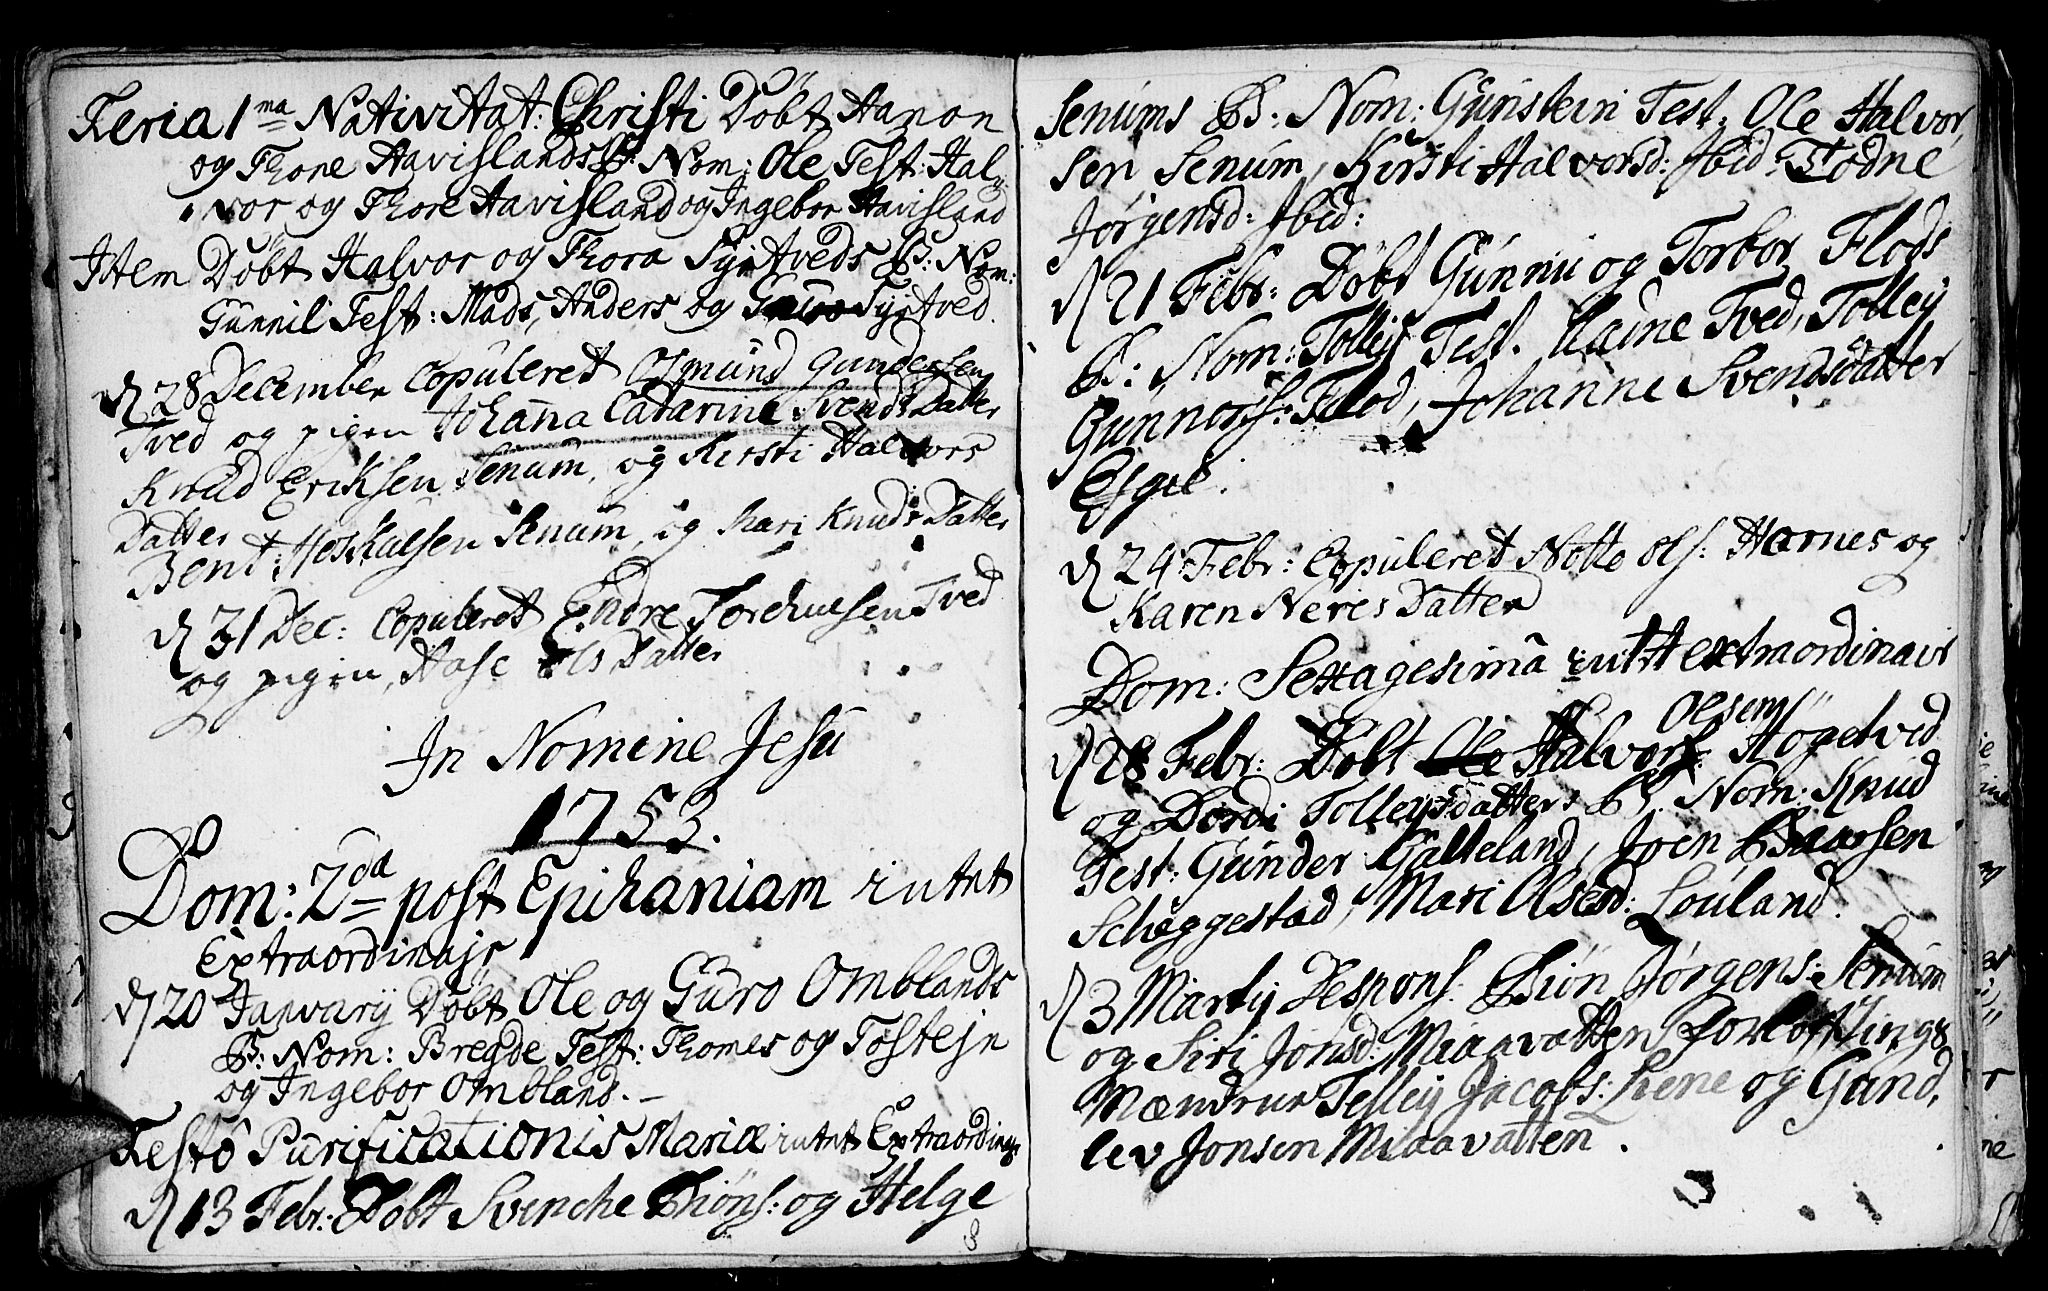 Feria 1ma Nativitat: Christi Döbt Aanon
og Thone Haavislands B: Nom: Ole Test: Hal-
vor og Thore Haavisland og Ingebor Haavisland
Item Döbt Halvor og Thora Syrtveds B: Nom:
Gunnil Test: Mads, Anders og Syrtved.
D 28 December Copuleret Osmund Gundersen
Tved og pigen Johanna Catarine Svends Datter
Knud Eriksen Senum, og Kersti Halvors
Datter
Bent: Senum, og Mari Knuds Datter
D 31 Dec: Copuleret Endre Tved
og pigen, Aase Ols Datter
In Nomine Jesu
1753.
Dom: 2da post Epihaniam intet
Extraordinajr
D 20 Janvarij Döbt Ole og Guro Omblands
B: Nom: Bregde Test: Thomes og Tostejn
og Ingebor Ombland. –
Festo Purificationis Mariæ intet Extraordinajr
D 13 Febr: Döbt Svenche Biöns: og Helge
Senums B: Nom: Gunstein Test. Ole Halvor,
sen Senum, Kirsti Halvorsd: Ibid: Todne
Jørgensd: Ibid:
D 21 Febr: Döbt Gunnu og Torbor Flods
B: Nom: Tollejf Test. Tved, Tolley
Gunnors: Flod, Johanne Svendsdatter

D 24 Febr: Copuleret Notto Ols: Hornes og
Karen Neres Datter
Dom: Sexagesima intet extraordinair
Olsens
D 28 Febr: Döbt Ole Halvors: Høgetved
og Dordi Tolleysdatters B. Nom: Knud
Test: Gunder Galteland, Joen Baarsen
Scheggestad, Mari Olsed: Louland.
D 3 Martij Despons: Biön Jörgens: Senum
og Siri Jonsd: Miaavatten Forlovings
Mændrun Tolley Jacobs: Lene og Gund,
lev Jonsen Miaavatten.